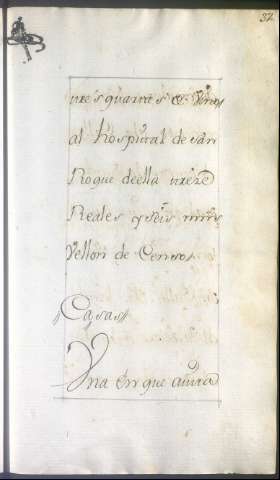 37
tres quartas &.
al hospital de san
Roque de ella treze
Reales y seis mrs
Vellon de Censo
Casas
Una en que avita